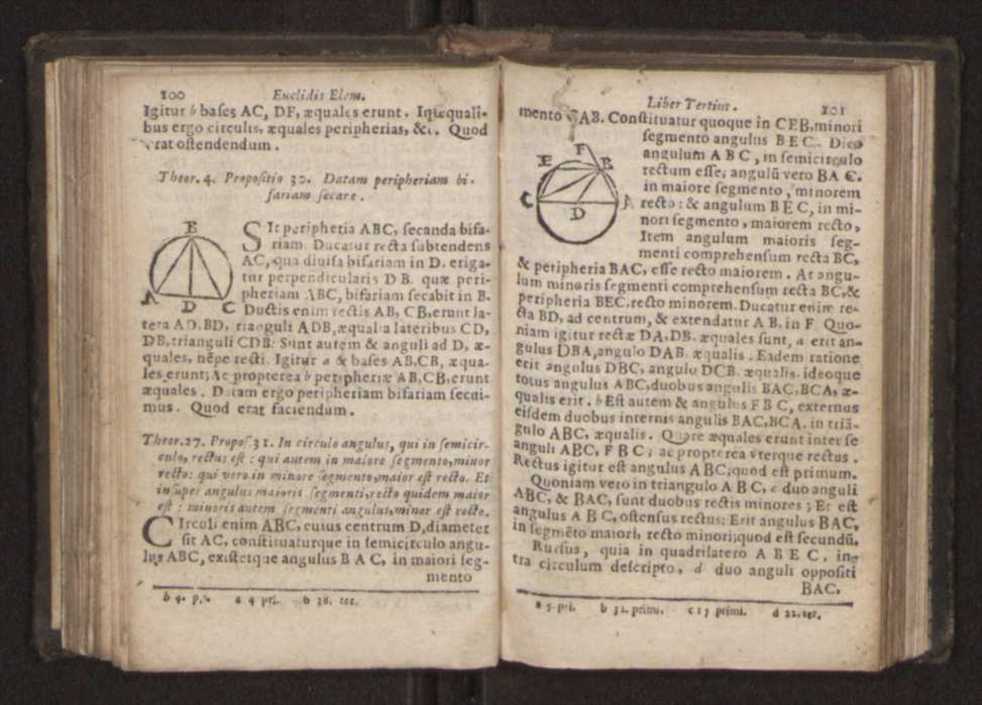 100 Euclidis Elem.
Igitur b bases AC, DF, æquales erunt. In æquali-
bus ergo circulis, æquales peripherias, &c. Quod
erat ostendendum.
Theor. 4. Propositio 30. Datam peripheriam bi-
fariam secare.
B
A D C
SIt peripheria ABC, secanda bifa-
riam. Ducatur recta subtendens
AC, qua diuisa bifariam in D. eriga-
tur perpendicularis DB. quæ peri-
pheriam ABC, bifariam secabit in B.
Ductis enim rectis AB, CB, erunt la-
tera AD. BD, trianguli ADB, æqualia lateribus CD,
DB, trianguli CDB: Sunt autem & anguli ad D, æ-
quales, nēpe recti. Igitur a & bases AB, CB, æqua-
les erunt; Ac propterea b peripheriæ AB, CB, erunt
æquales. Datam ergo peripheriam bifariam secui-
mus. Quod erat faciendum.
Theor. 27. Propos. 31. In circulo angulus, qui in semicir-
culo, rectus est: qui autem in maiore segmento, minor
recto: qui vero in minore segmento, maior est recto. Et
insuper angulus maioris segmenti, recto quidem maior
est: minoris autem segmenti angulus, minor est recto.
CIrculi enim ABC, cuius centrum D, diameter
sit AC, constituaturque in semicirculo angu-
lus ABC, existetque angulus BAC, in maiori seg-
mento
b 4. p. a 4 pri. b 28. ter.
Liber Tertius. 101
mento CAB. Constituatur quoque in CEB, minori
segmento angulus BEC. Dico
angulum ABC, in semicirculo
rectum esse; angulū vero BAC.
in maiore segmento, minorem
recto: & angulum BEC, in mi-
nori segmento, maiorem recto,
Item angulum maioris seg-
menti comprehensum recta BC,
F
E B
C A
D
& peripheria BAC, esse recto maiorem. At angu-
lum minoris segmenti comprehensum recta BC, &
peripheria BEC. recto minorem. Ducatur enim re-
cta BD, ad centrum, & extendatur AB. in F. Quo-
niam igitur rectæ DA. DB. æquales sunt, a erit an-
gulus DBA, angulo DAB. æqualis. Eadem ratione
erit angulus DBC, angulo DCB. æqualis. ideoque
totus angulus ABC, duobus angulis BAC, BCA, æ-
qualis erit. b Est autem & angulus FBC, externus
eisdem duobus internis angulis BAC, BCA. in triā-
gulo ABC, æqualis. Quare æquales erunt inter se
anguli ABC, FBC; ac propterea vterque rectus.
Rectus igitur est angulus ABC; quod est primum.
Quoniam vero in triangulo ABC, c duo anguli
ABC, & BAC, sunt duobus rectis minores; Et est
angulus ABC, ostensus rectus: Erit angulus BAC,
in segmēto maiori, recto minori; quod est secundū.
Rursus, quia in quadrilatero ABEC, in-
tra circulum descripto, d duo anguli oppositi
BAC,
a 5. pri. b 32. primi. c 17 primi. d 22. ter.